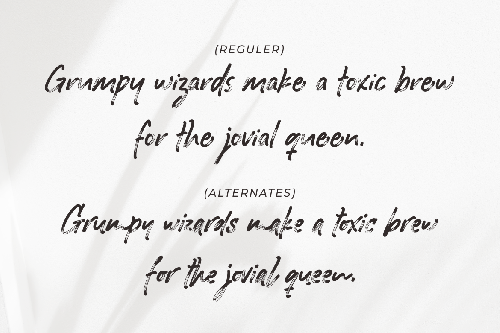 (REGULER)
Grumpy wizards make a toxic brew
for the jovial queen.
(ALTERNATES)
Grumpy wizards make a toxic brew
for the jovial queen.